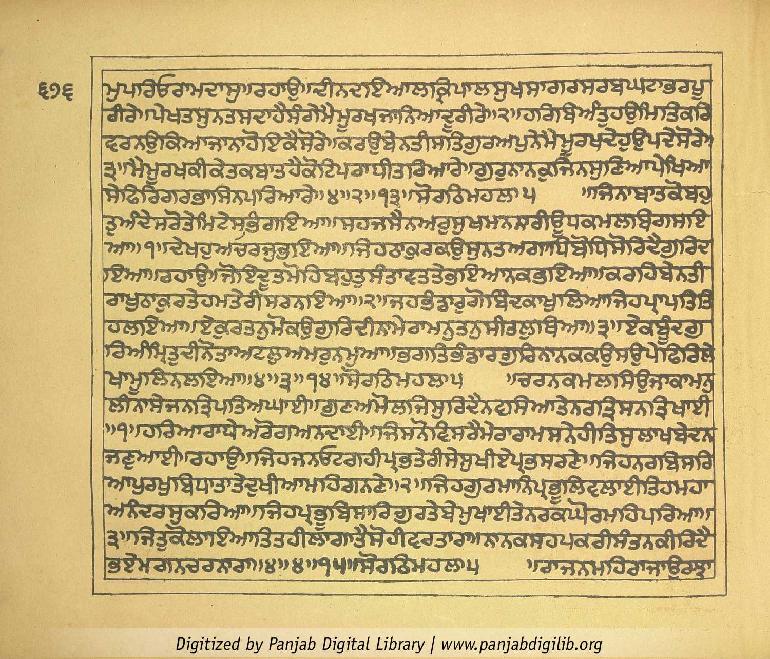 ੬੧੬
ਮੁਪਾਰਿਓਰਾਮਦਾਸੁ॥ਰਹਾਉ॥ਦੀਨਦਇਆਲਕ੍ਰਿਪਾਲਸੁਖਸਾਗਰਸਰਬਘਟਾਭਰਪੂ
ਰੀਰੇ॥ਪੇਖਤਸੁਨਤਸਦਾਹੈਸੰਗੇਮੈਮੂਰਖਜਾਨਿਆਦੂਰੀਰੇ॥੨॥ਹਰਿਬਿਅੰਤੁਹਉਮਿਤਿਕਰਿ
ਵਰਨਉਕਿਆਜਾਨਾਹੋਇਕੈਸੋਰੇ॥ਕਰਉਬੇਨਤੀਸਤਿਗੁਰਅਪੁਨੇਮੈਮੂਰਖਦੇਹੁਉਪਦੇਸੋਰੇ॥
੩॥ਮੈਮੂਰਖਕੀਕੇਤਕਬਾਤਹੈਕੋਟਿਪਰਾਧੀਤਰਿਆਰੇ॥ਗੁਰੁਨਾਨਕੁਜਿਨਸੁਣਿਆਪੇਖਿਆ
ਸੇਫਿਰਿਗਰਭਾਸਿਨਪਰਿਆਰੇ॥੪॥੨॥੧੩॥ਸੋਰਠਿਮਹਲਾ੫ ॥ਜਿਨਾਬਾਤਕੋਬਹੁ
ਤੁਅੰਦੇਸਰੋਤੇਮਿਟੇਸਭਿਗਇਆ॥ਸਹਜਸੈਨਅਰੁਸੁਖਮਨਨਾਰੀਊਧਕਮਲਬਿਗਸਇ
ਆ॥੧॥ਦੇਖਹੁਅਚਰਜੁਭਇਆ॥ਜਿਹਠਾਕੁਰਕਉਸੁਨਤਅਗਾਧਿਬੋਧਿਸੋਰਿਦੈਗੁਰਿਦ
ਇਆ॥ਰਹਾਉ॥ਜੋਇਦੂਤਮੋਹਿਬਹੁਤੁਸੰਤਾਵਤਤੇਭਇਆਨਕਭਇਆ॥ਕਰਹਿਬੇਨਤੀ
ਰਾਖੁਠਾਕੁਰਤੇਹਮਤੇਰੀਸਰਨਇਆ॥੨॥ਜਹਭੰਡਾਰੁਗੋਬਿੰਦਕਾਖੁਲਿਆਜਿਹਪ੍ਰਾਪਤਿਤਿ
ਹਲਇਆ॥ਏਕੁਰਤਨੁਮੋਕਉਗੁਰਿਦੀਨਾਮੇਰਾਮਨੁਤਨੁਸੀਤਲੁਥਿਆ॥੩॥ਏਕਬੂੰਦਗੁ
ਰਿਅੰਮ੍ਰਿਤੁਦੀਨੋਤਾਅਟਲੁਅਮਰੁਨਮੁਆ॥ਭਗਤਿਭੰਡਾਰਗੁਰਿਨਾਨਕਕਉਸਉਪੇਫਿਰਿਲੇ
ਖਾਮੂਲਿਨਲਇਆ॥੪॥੩॥੧੪॥ਸੋਰਠਿਮਹਲਾ੫ ॥ਚਰਨਕਮਲਸਿਉਜਾਕਾਮਨੁ
ਲੀਨਾਸੇਜਨਤ੍ਰਿਪਤਿਅਘਾਈ॥ਗੁਣਅਮੋਲਜਿਸੁਰਿਦੈਨਵਸਿਆਤੇਨਰਤ੍ਰਿਸਨਤ੍ਰਿਖਾਈ
॥੧॥ਹਰਿਆਰਾਧੇਅਰੋਗਅਨਦਾਈ॥ਜਿਸਨੋਵਿਸਰੈਮੇਰਾਰਾਮਸਨੇਹੀਤਿਸੁਲਾਖਬੇਦਨ
ਜਣੁਆਈ॥ਰਹਾਉ॥ਜਿਹਜਨਓਟਗਹੀਪ੍ਰਭਤੇਰੀਸੇਸੁਖੀਏਪ੍ਰਭਸਰਣੇ॥ਜਿਹਨਰਬਿਸਰਿ
ਆਪੁਰਖੁਬਿਧਾਤਾਤੇਦੁਖੀਆਮਹਿਗਨਣੇ॥੨॥ਜਿਹਗੁਰਮਾਨਿਪ੍ਰਭੂਲਿਵਲਾਈਤਿਹਮਹਾ
ਅਨੰਦਰਸੁਕਰਿਆ॥ਜਿਹਪ੍ਰਭੂਬਿਸਾਰਿਗੁਰਤੇਬੇਮੁਖਾਈਤੇਨਰਕਘੋਰਮਹਿਪਰਿਆ॥
੩॥ਜਿਤੁਕੋਲਾਇਆਤਿਤਹੀਲਾਗਾਤੈਸੋਹੀਵਰਤਾਰਾ॥ਨਾਨਕਸਹਪਕਰੀਸੰਤਨਕੀਰਿਦੈ
ਭਏਮਗਨਚਰਨਾਰਾ॥੪॥੪॥੧੫॥ਸੋਰਠਿਮਹਲਾ੫ ॥ਰਾਜਨਮਹਿਰਾਜਾਉਰਝਾ
Digitized by Panjab Digital Library | www.panjabdigilib.org